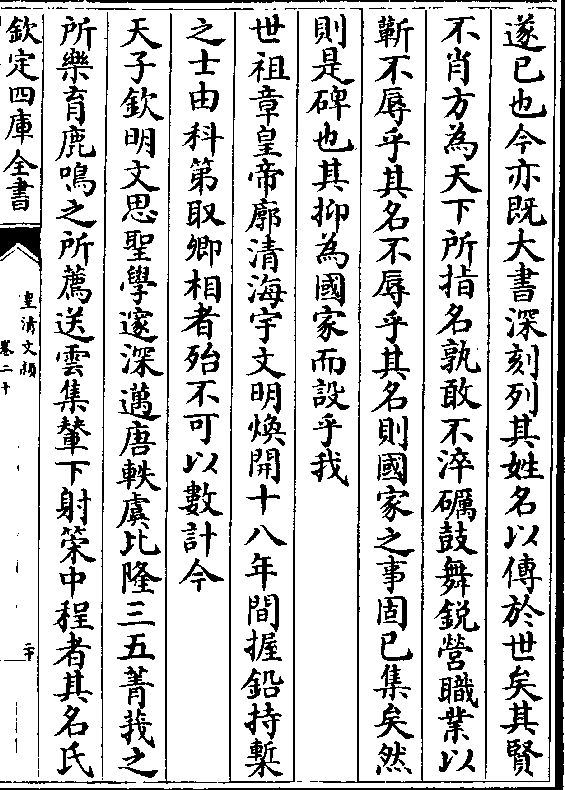 遂已也今亦既大書深刻列其姓名以傳於世矣其賢
不肖方為天下所指名孰敢不淬礪鼓舞鋭營職業以
蘄不辱乎其名不辱乎其名則國家之事固已集矣然
則是碑也其抑為國家而設乎我
世祖章皇帝廓清海宇文明煥開十八年間握鉛持槧
之士由科第取卿相者殆不可以數計今
天子欽明文思聖學邃深邁唐軼虞比隆三五菁莪之
所樂育鹿鳴之所薦送雲集輦下射策中程者其名氏
欽定四庫全書
皇清文頴
卷二十
二十